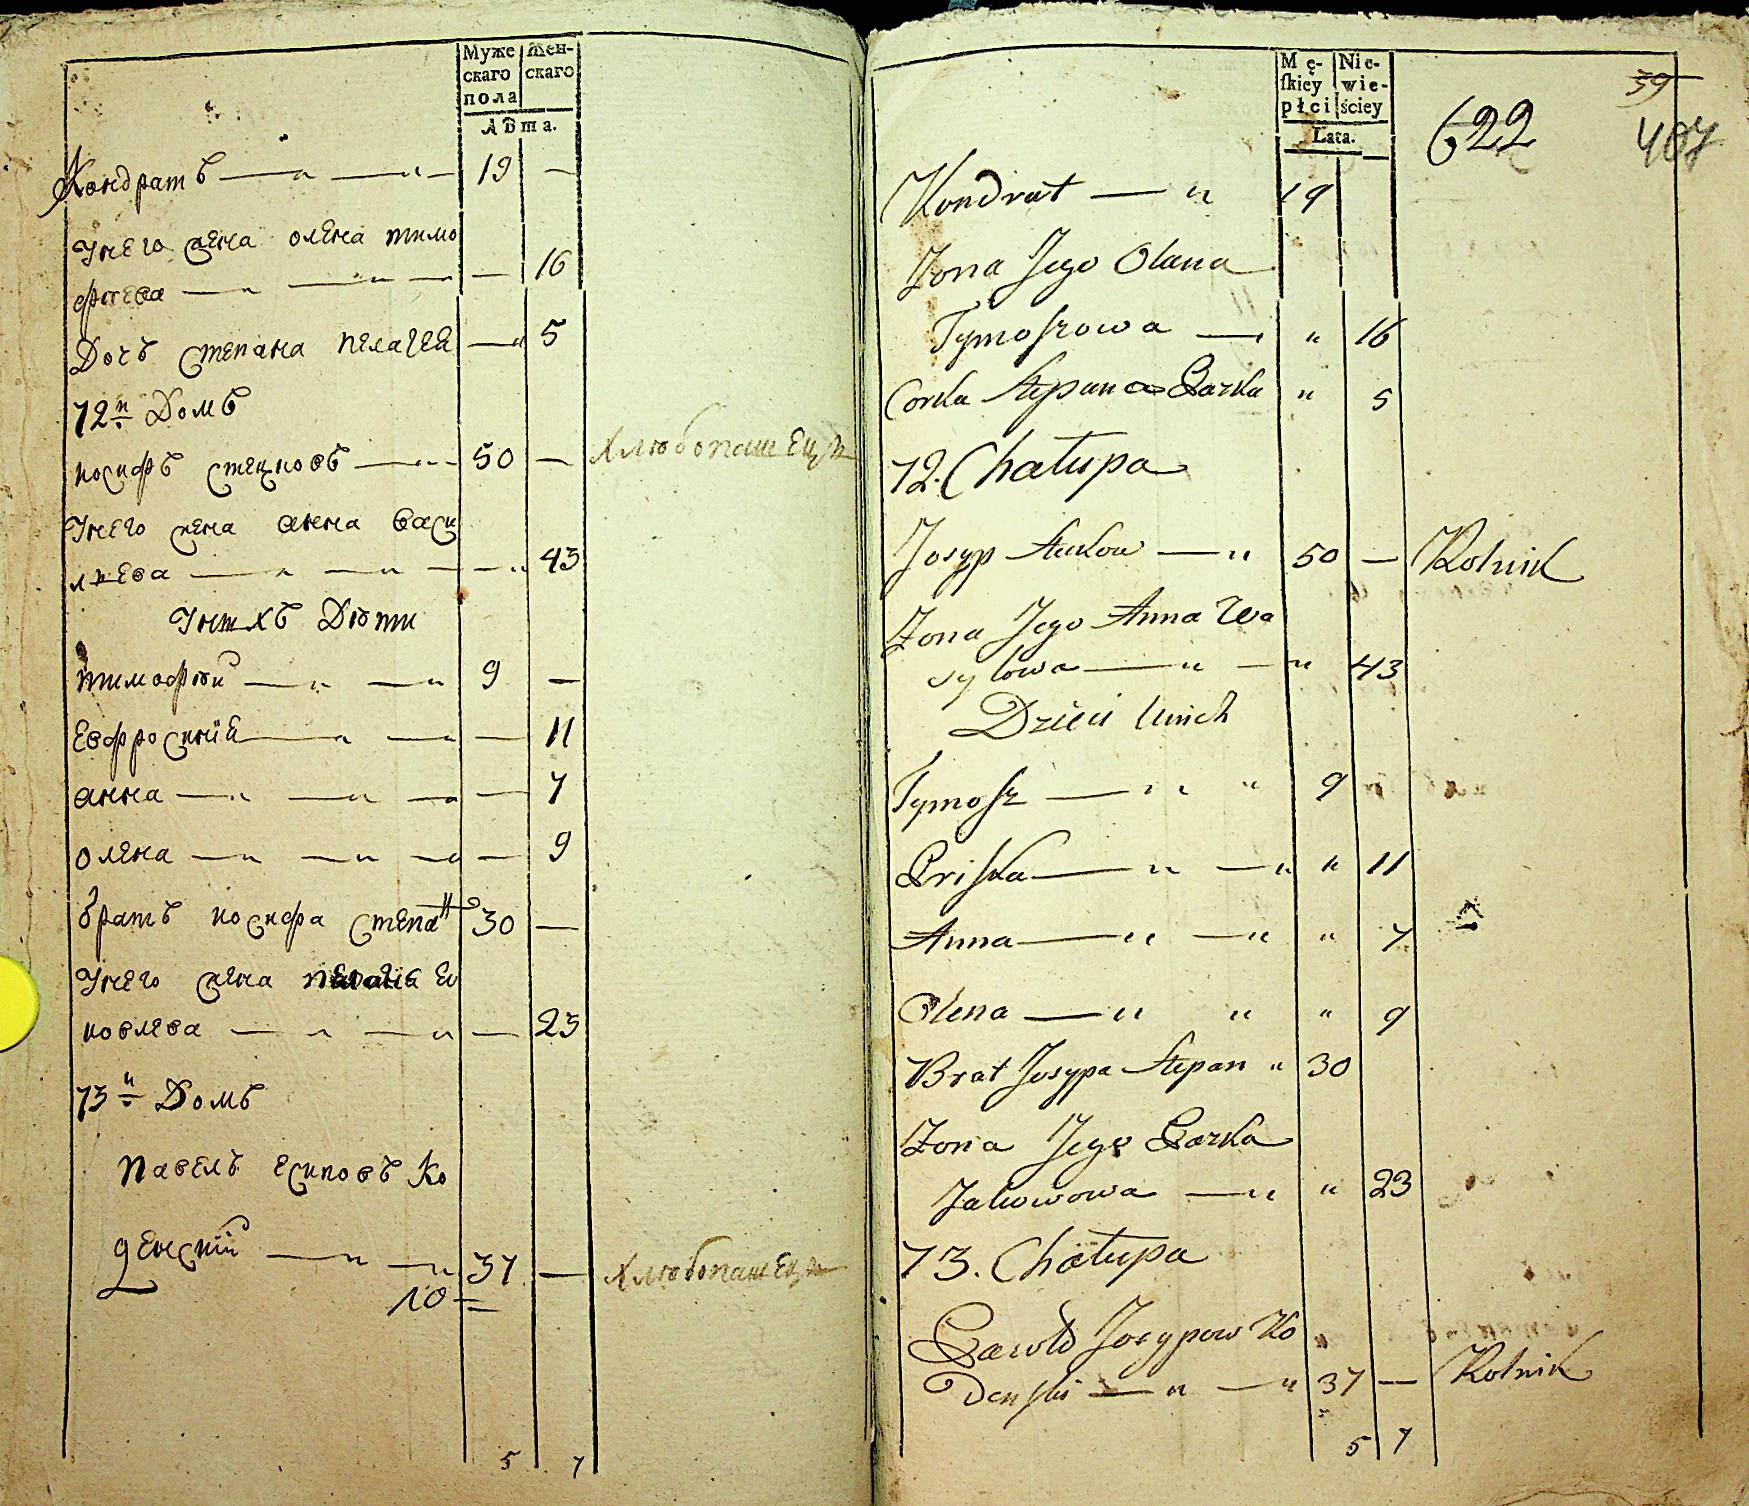 Муже
скаго
пола
Жен-
скаго
лѣта.
Кондратъ — " — " — 19 —
Унего жена олена тимо
фѣева — " — " — — 16
Дочь степана пелагея — " 5
72й Домъ
иосифъ стецковъ — " — 50 — хлѣбопашецъ
Унего жена анна васи
лиева — " — " — — " 43
Унихъ Дѣти
тимофѣй — " — " 9 —
евфросинія — " — " — 11
анна — " — " — " — 7
олена — " — " — " — 9
братъ иосифа степан 30 —
Унего жена пелагия
ковлева — " — " — 23
73й Домъ
павелъ есиповъ Ко
денский — " — " 37 — хлѣбопашецъ
10
5 7
Mę-
skiey
płci
Nie-
wie-
ściey
Lata.
59
622
407
Kondrat — " 19
Zona Jego Olana
Tymoszowa — " " 16
Corka Stepana Parka " 5
72. Chałupa
Josyp Steckow — " 50 — Rolnik
Zona Jego Anna Wa
sylowa — " — " 43
Dzieci Unich
Tymosz — " " 9
Priska — " — " " 11
Anna — " — " " 7
Olena — " " " 9
Brat Josypa Stepan " 30
Zona Jego Parka
Jakowowa — " " 23
73. Chałupa
Pawło Josypow Ko
Denski — " — " 37 — Rolnik
5 7